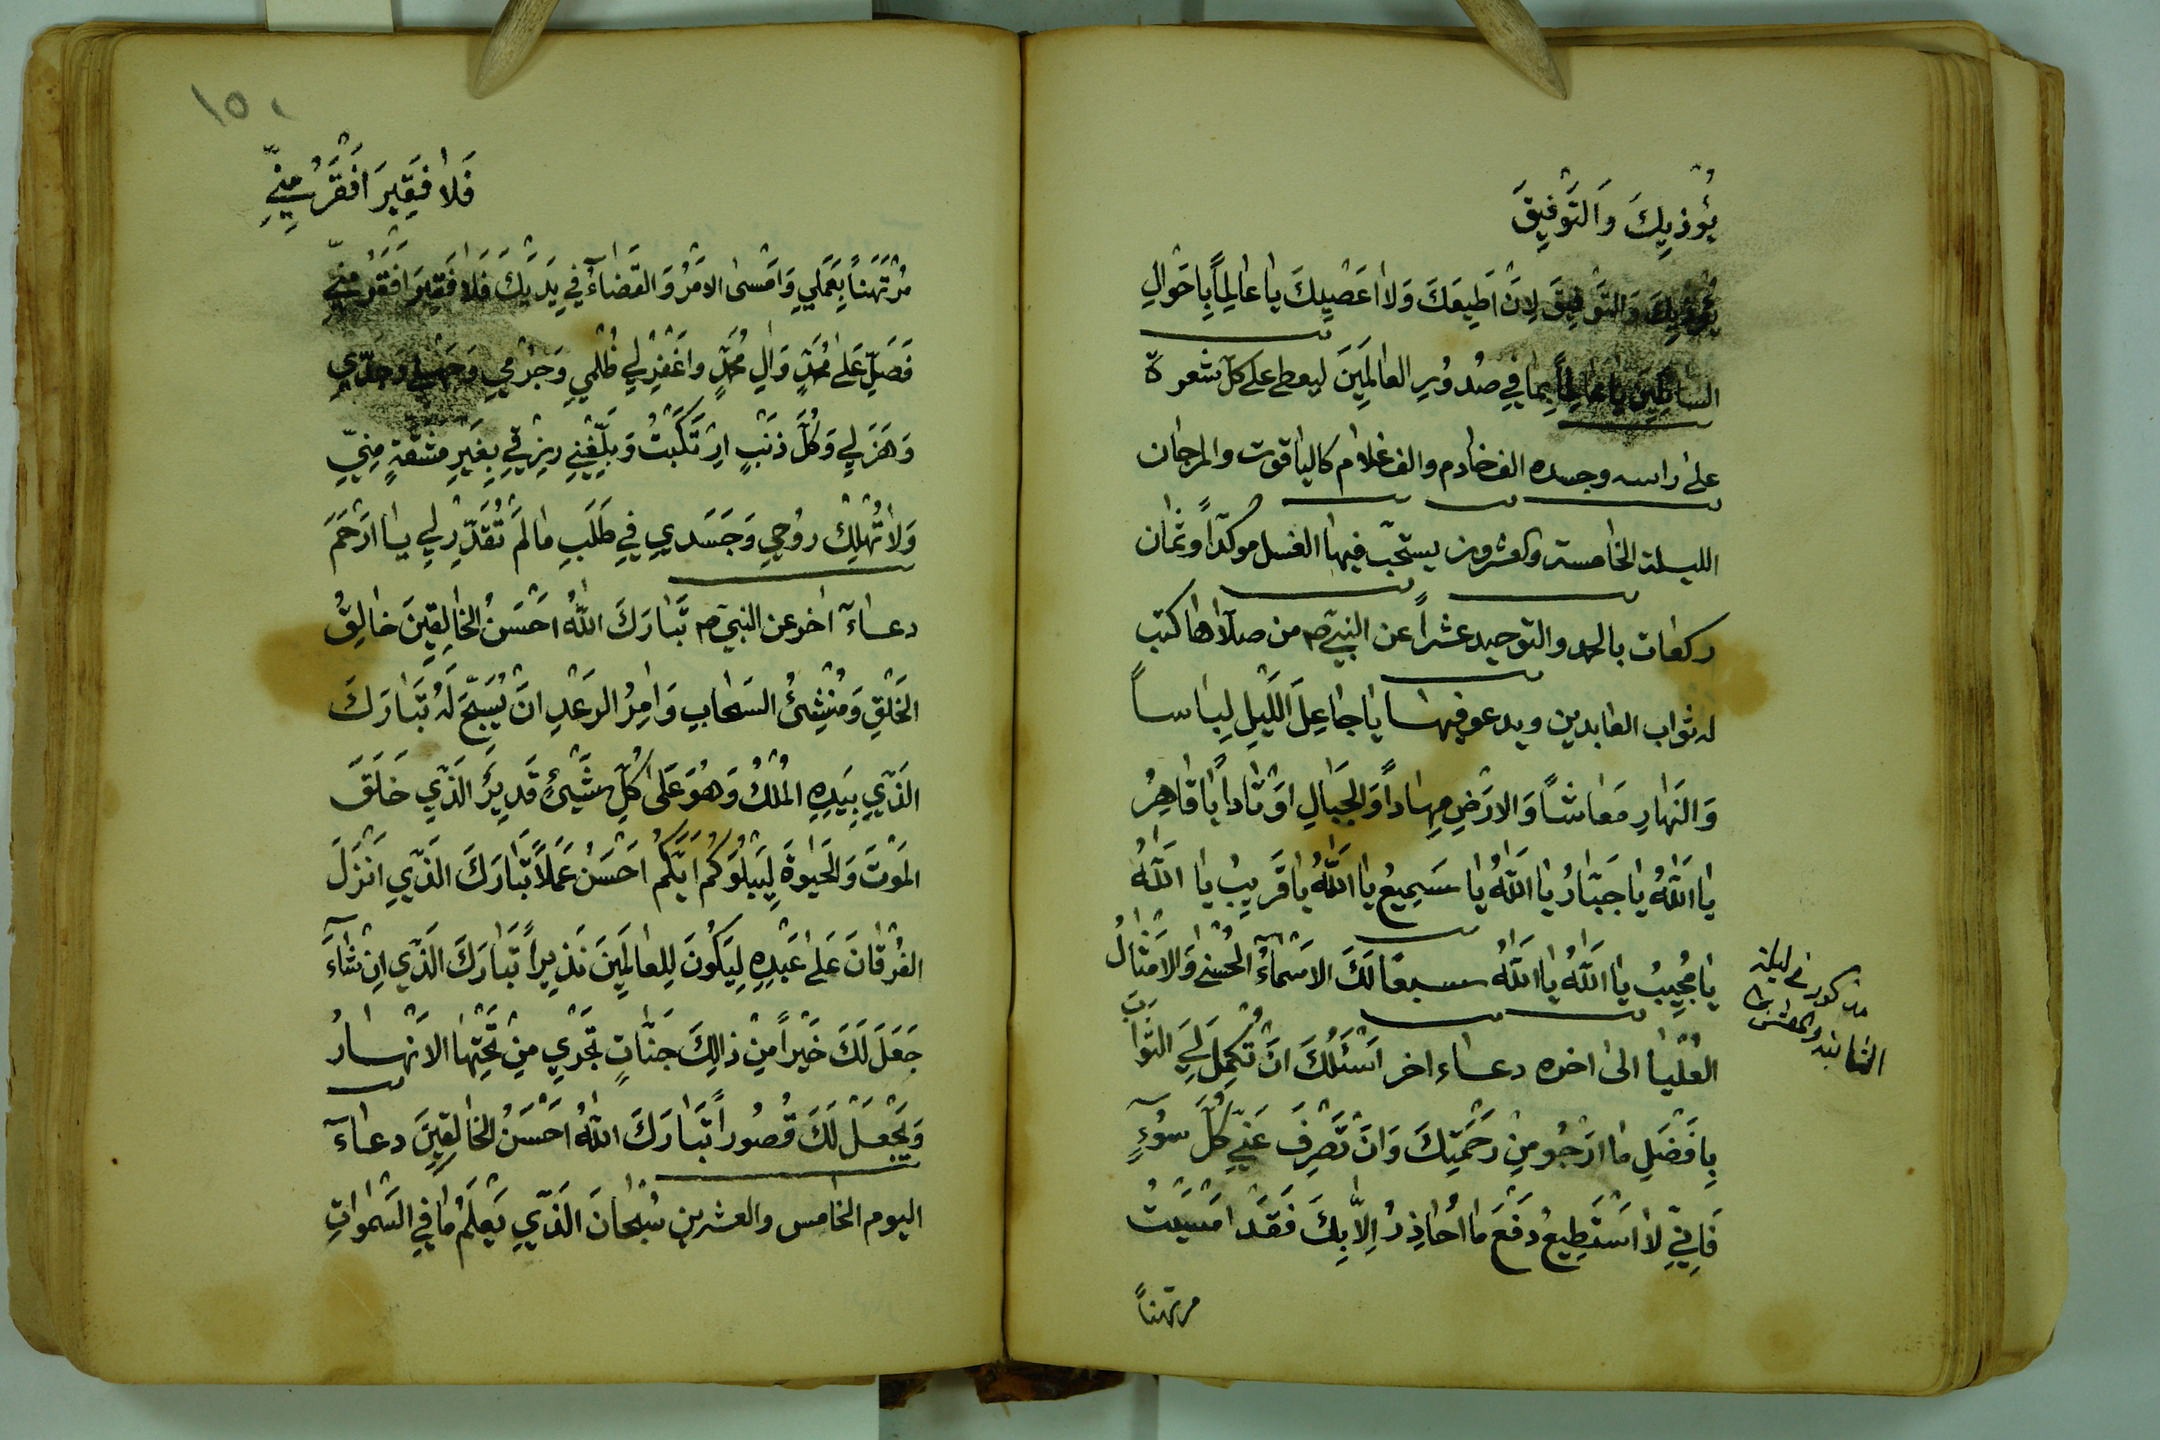 يُؤْذيكَ وَالتَّوْفيقَ
يُؤْذيكَ وَالتَّوْفيقَ لِاَنْ اُطيعَكَ وَلا اَعْصِيَكَ يا عالِماً بِاَحْوالِ
السائِلينَ يا عالِماً بِما في صُدُورِ العالَمينَ ليعطى على كلّ شعرة
على راسه وجسده الف خادم والف غلام كالياقوت والمرجان
الليلة الخامسة والعشرون يستحبّ فيها الغسل موكّداً وثمان
ركعات بالحمد والتوحيد عشراً عن النبيّ ص من صلّاها كتب
له ثواب العابدين ويدعو فيها يا جاعِلَ اللَّيْلِ لِباساً
وَالنَّهارِ مَعاشاً وَالاَرْضِ مِهاداً وَالجِبالِ اَوْتاداً يا قاهِرُ
يا اَللّٰهُ يا جَبّارُ يا اَللّٰهُ يا سَميعُ يا اَللّٰهُ يا قَريبُ يا اَللّٰهُ
يا مُجيبُ يا اَللّٰهُ يا اَللّٰهُ سبعاً لَكَ الاَسْماءُ الحُسْنى وَالاَمْثالُ
العُلْيا الى اخره دعاء اخر اَسْئَلُكَ اَنْ تُكْمِلَ لِيَ الثَّوابَ
بِاَفْضَلِ ما اَرْجُو مِنْ رَحْمَتِكَ وَاَنْ تَصْرِفَ عَنّي كُلَّ سُوءٍ
فَاِنّي لا اَسْتَطيعُ دَفْعَ ما اُحاذِرُ اِلّا بِكَ فَقَدْ اَمْسَيْتُ
مرتهناً
مذكور في ليلة
الثانية والعشرين
١٥٠
فَلا فَقيرَ اَفْقَرُ مِنّي
مُرْتَهَناً بِعَمَلي وَاَمْسَى الاَمْرُ وَالقَضاءُ في يَدَيْكَ فَلا فَقيرَ اَفْقَرُ مِنّي
فَصَلِّ عَلى مُحَمَّدٍ وَالِ مُحَمَّدٍ وَاغْفِرْ لي ظُلْمي وَجُرْمي وَجَهْلي وَجِدّي
وَهَزْلي وَكُلَّ ذَنْبٍ اِرْتَكَبْتُ وَبَلِّغْني رِزْقي بِغَيْرِ مَشَقَّةٍ مِنّي
وَلا تُهْلِكْ رُوحي وَجَسَدي في طَلَبِ ما لَمْ تُقَدِّرْ لي يا اَرْحَمَ
دعاء اخر عن النبيّ ص تَبارَكَ اللّٰهُ اَحْسَنُ الخالِقينَ خالِقُ
الخَلْقِ وَمُنْشِئُ السَحابِ وَامِرُ الرَعْدِ اَنْ يُسَبِّحَ لَهُ تَبارَكَ
الَّذي بِيَدِهِ المُلْكُ وَهُوَ عَلى كُلِّ شَيْئٍ قَديرٌ الَّذي خَلَقَ
المَوْتَ وَالحَيوةَ لِيَبْلُوَكُمْ اَيُّكُمْ اَحْسَنُ عَمَلاً تَبارَكَ الَّذي اَنْزَلَ
الفُرْقانَ عَلى عَبْدِهِ لِيَكُونَ لِلعالَمينَ نَذيراً تَبارَكَ الَّذي اِنْ شاءَ
جَعَلَ لَكَ خَيْراً مِنْ ذالِكَ جَنّاتٍ تَجْري مِنْ تَحْتِهَا الاَنْهارُ
وَيَجْعَلْ لَكَ قُصُوراً تَبارَكَ اللّٰهُ اَحْسَنُ الخالِقينَ دعاء
اليوم الخامس والعشرين سُبْحانَ الَّذي يَعْلَمُ ما فِي السَّمٰواتِ